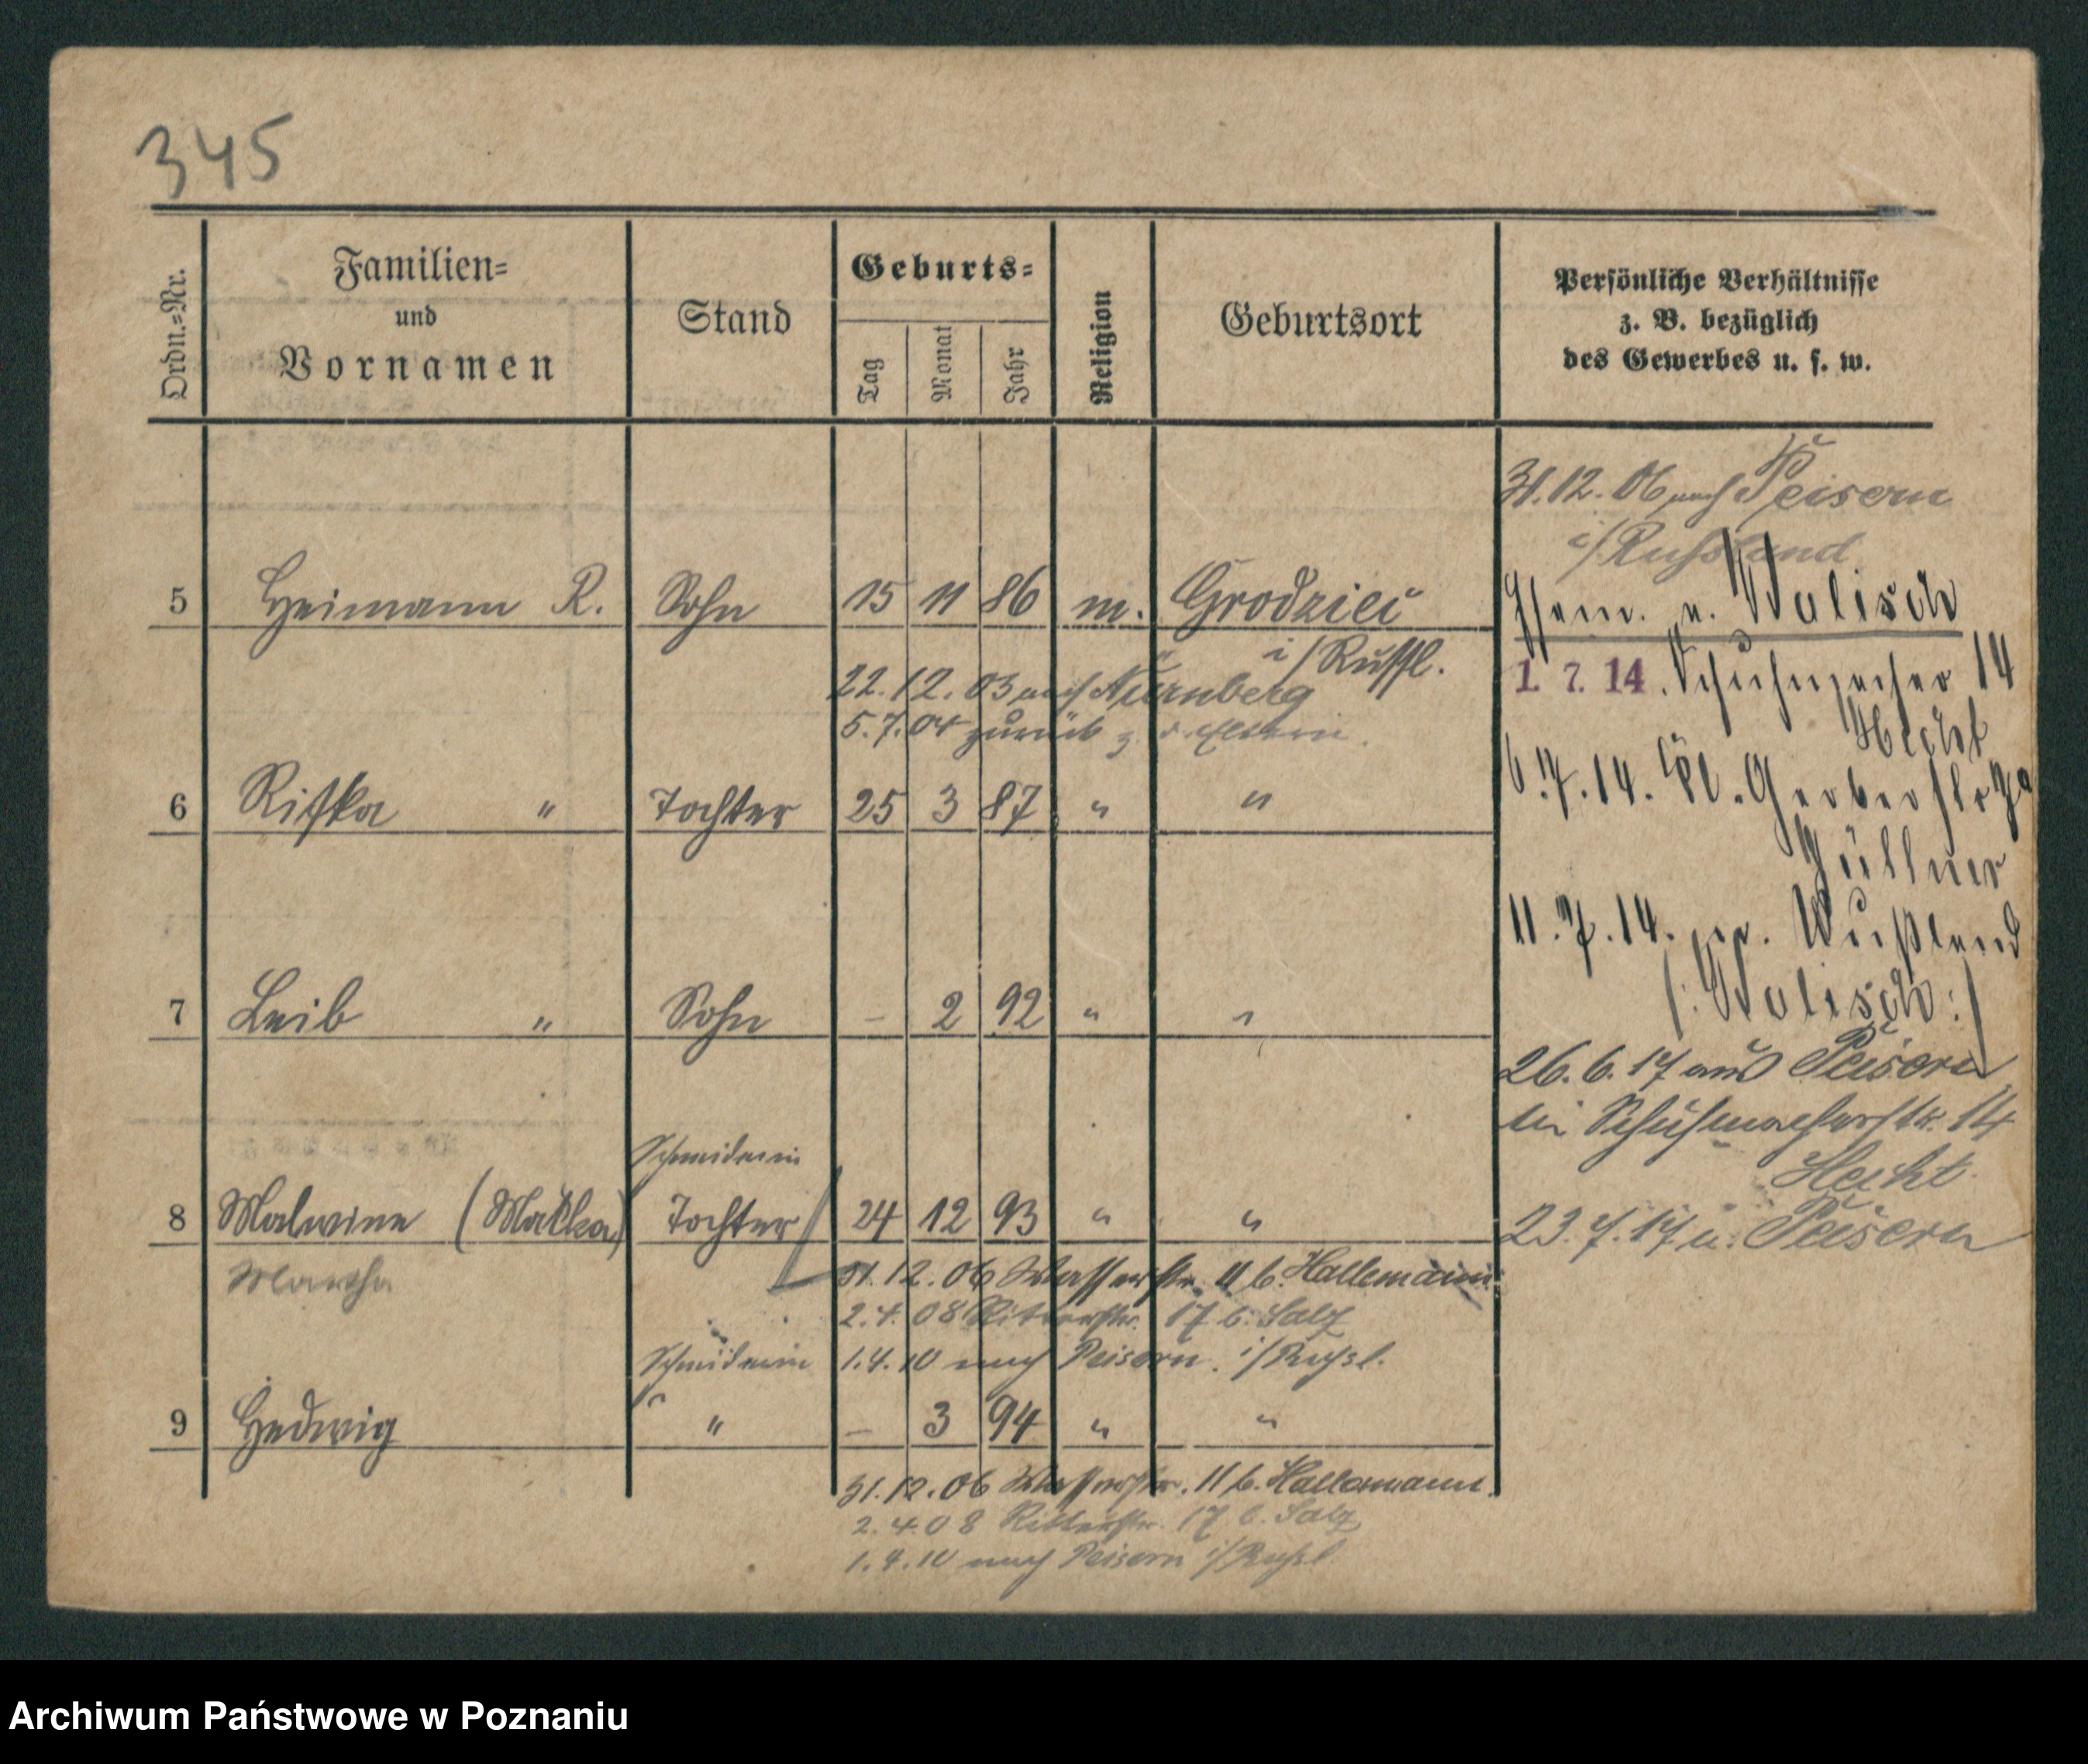 345
Ordn.=Nr.
Familien=
und
Vornamen
Stand
Geburts=
Tag
Monat
Jahr
Religion
Geburtsort
Persönliche Verhältnisse
z. B. bezüglich
des Gewerbes u. s. w.
31.12.06 nach Peisern
i/Russland
5 Heimann R. Sohn 15 11 86 m. Grodziec
i/Russl.
22.12.03 nach Nürnberg
5.7.04 zurück z. d. Eltern.
u. Polisch
1. 7. 14. Schuhmacher 14
Hecht
6.7.14. Kl. Gerberstr
Züllner
6 Rifka " Tochter 25 3 87 " "
11.7.14. Russland
(: Polisch :)
7 Leib " Sohn – 2 92 " "
26.6.17 aus Peisern
in Schuhmacherstr. 14
Hecht
23.7.17 n. Peisern
Schneiderin
8 Malwine (Malka) Tochter 24 12 93 " "
Martha
31.12.06 Wasserstr. 11 b. Hallemann
2.4.08 Ritterstr. 17 b. Salz
Schneiderin 1.4.10 nach Peisern i/Russl.
9 Hedwig " – 3 94 " "
31.12.06 Wasserstr. 11 b. Hallemann.
2.4.08 Ritterstr. 17 b. Salz
1.4.10 nach Peisern i/Russl
Archiwum Państwowe w Poznaniu